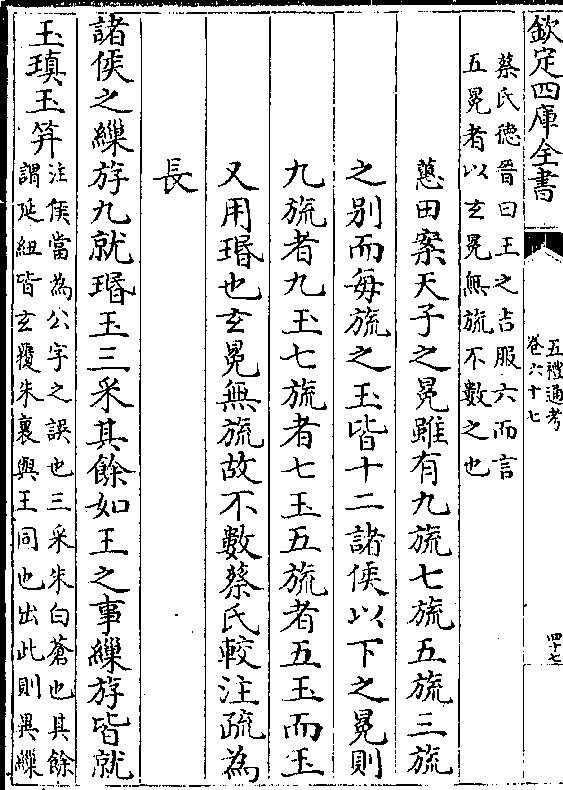 欽定四庫全書
五禮通考
卷六十七
四十七
蔡氏德晉曰王之吉服六而言
五冕者以玄冕無旒不數之也
蕙田案天子之冕雖有九旒七旒五旒三旒
之别而每旒之玉皆十二諸侯以下之冕則
九旒者九玉七旒者七玉五旒者五玉而玉
又用瑉也玄冕無旒故不數蔡氏較注疏為
長
諸侯之繅斿九就瑉玉三采其餘如王之事繅斿皆就
玉瑱玉笄
注侯當為公字之誤也三采朱白蒼也其餘
謂延紐皆玄覆朱裏與王同也出此則異繅